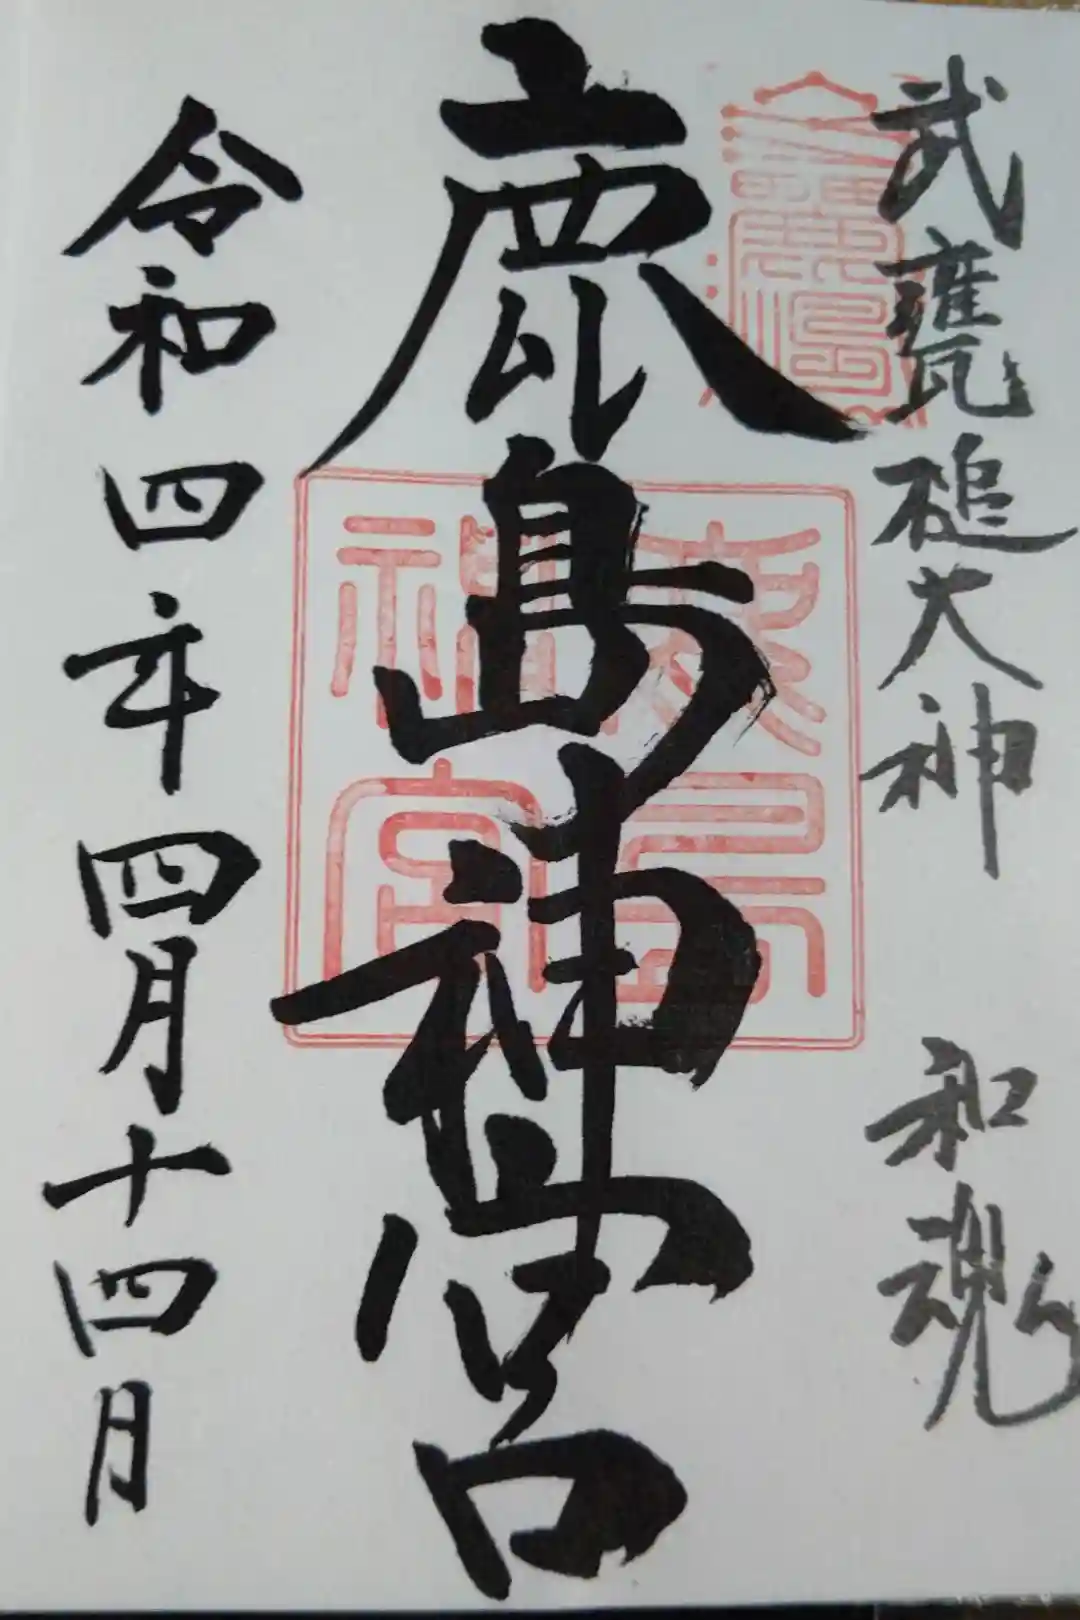 武甕槌大神 和魂
鹿島神宮
令和四年四月十四月
鹿島神宮